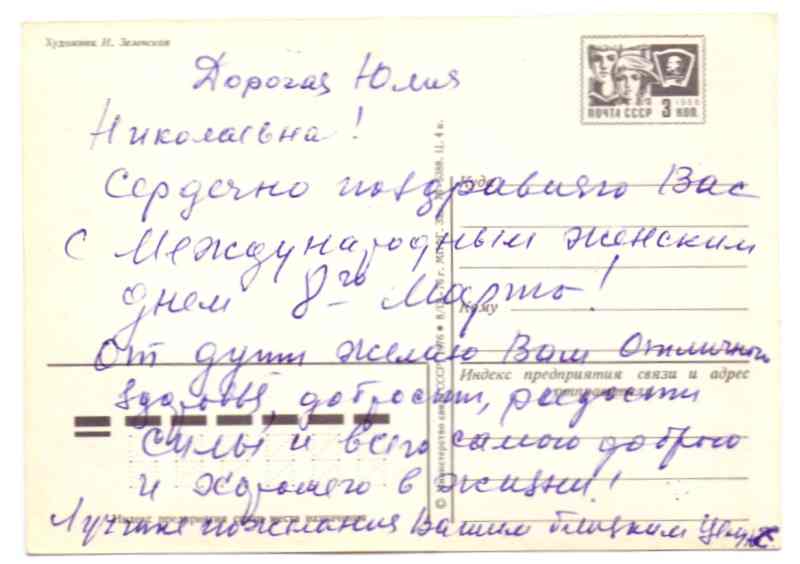 Художник И. Зеленская
ПОЧТА СССР 3 КОП.
1966
Дорогая Юлия
Николаевна!
Сердечно поздравляю Вас
с Международным женским
днем 8го Марта!
От души желаю Вам отличного
здоровья, бодрости, радости
силы и всего самого доброго
и хорошего в жизни!
Лучшие пожелания Вашим близким
Куда
Кому
Индекс предприятия связи и адрес
отправителя
Индекс предприятия связи места назначения
© Министерство связи СССР